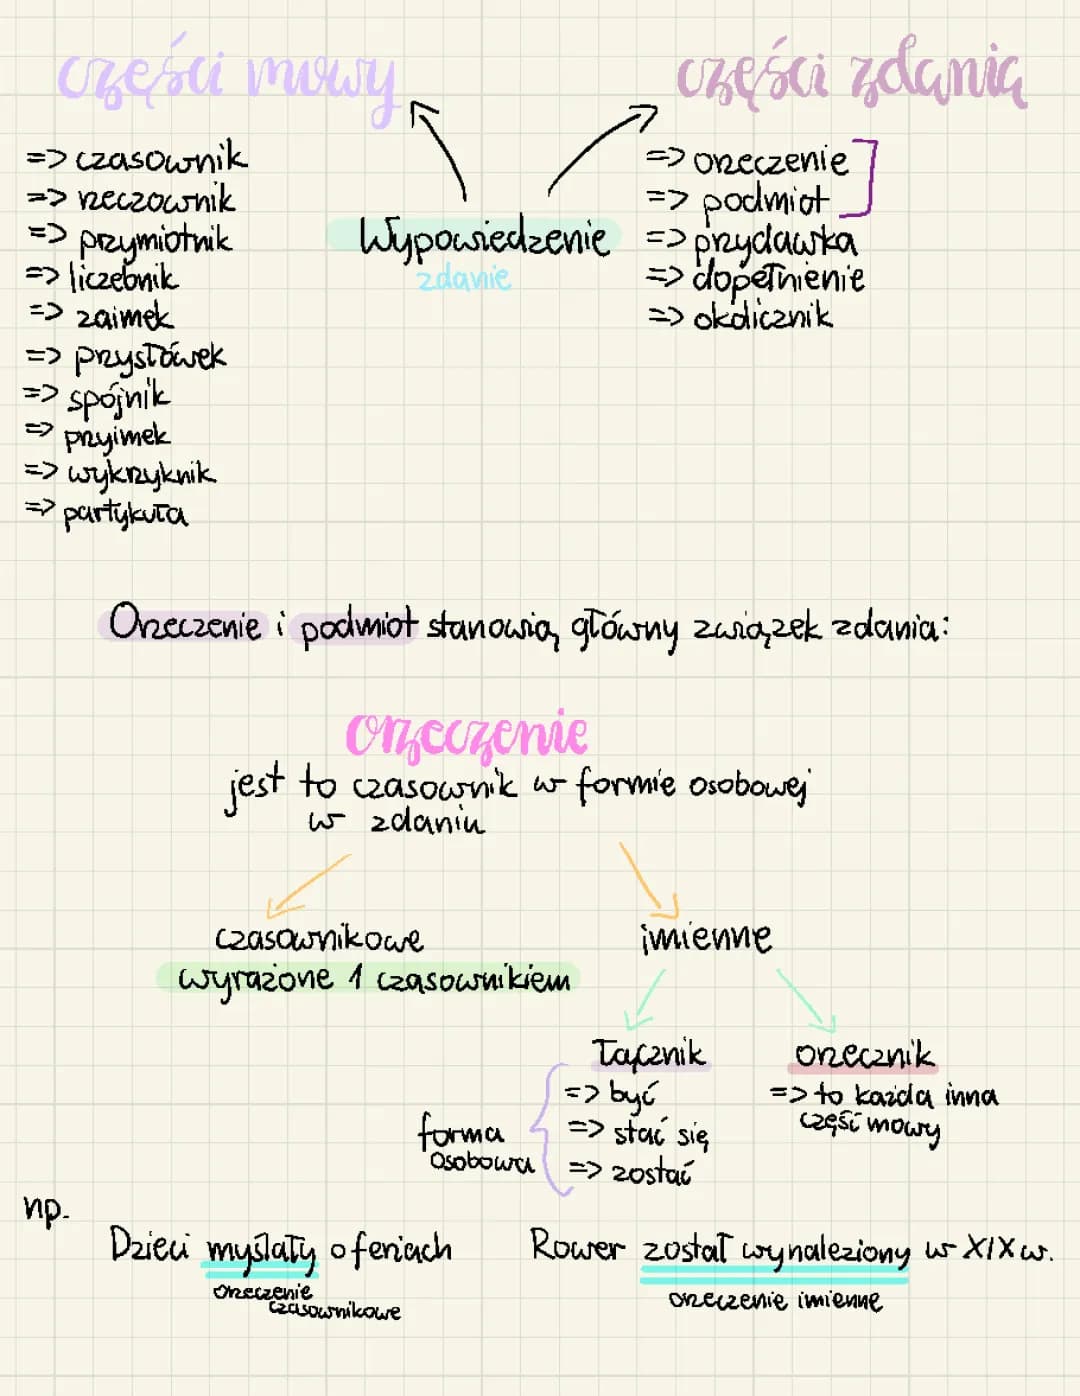 części mowy
części zdania
=> czasownik
=> rzeczownik
=> przymiotnik
=> liczebnik
=> zaimek
=> przysłówek
=> spójnik
=> przyimek
=> wykrzyknik
=> partykuła
Wypowiedzenie
zdanie
=> orzeczenie
=> podmiot
=> przydawka
=> dopełnienie
=> okolicznik
Orzeczenie i podmiot stanowią główny związek zdania:
orzeczenie
jest to czasownik w formie osobowej
w zdaniu
czasownikowe
wyrażone 1 czasownikiem
imienne
łącznik
=> być
=> stać się
=> zostać
forma
osobowa
orzecznik
=> to każda inna
część mowy
np.
Dzieci myślały o feriach
orzeczenie
czasownikowe
Rower został wynaleziony w XIX w.
orzeczenie imienne